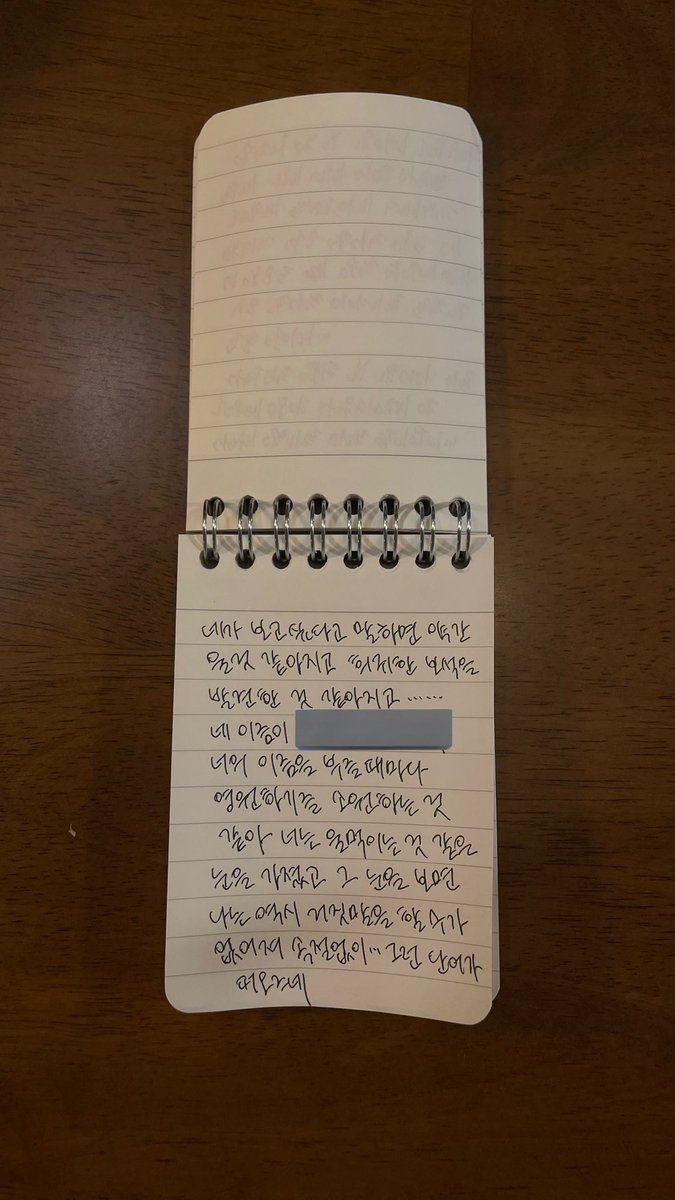 네가 보고싶다고 말하면 약간
울것 같아지고 희귀한 보석을
발견한 것 같아지고 ......
네 이름이
너의 이름을 부를때마다
영원하기를 소원하는 것
같아 너는 울먹이는 것 같은
눈을 가졌고 그 눈을 보면
나는 역시 거짓말을 할 수가
없어져 속절없이... 그런 단어가
떠오르네